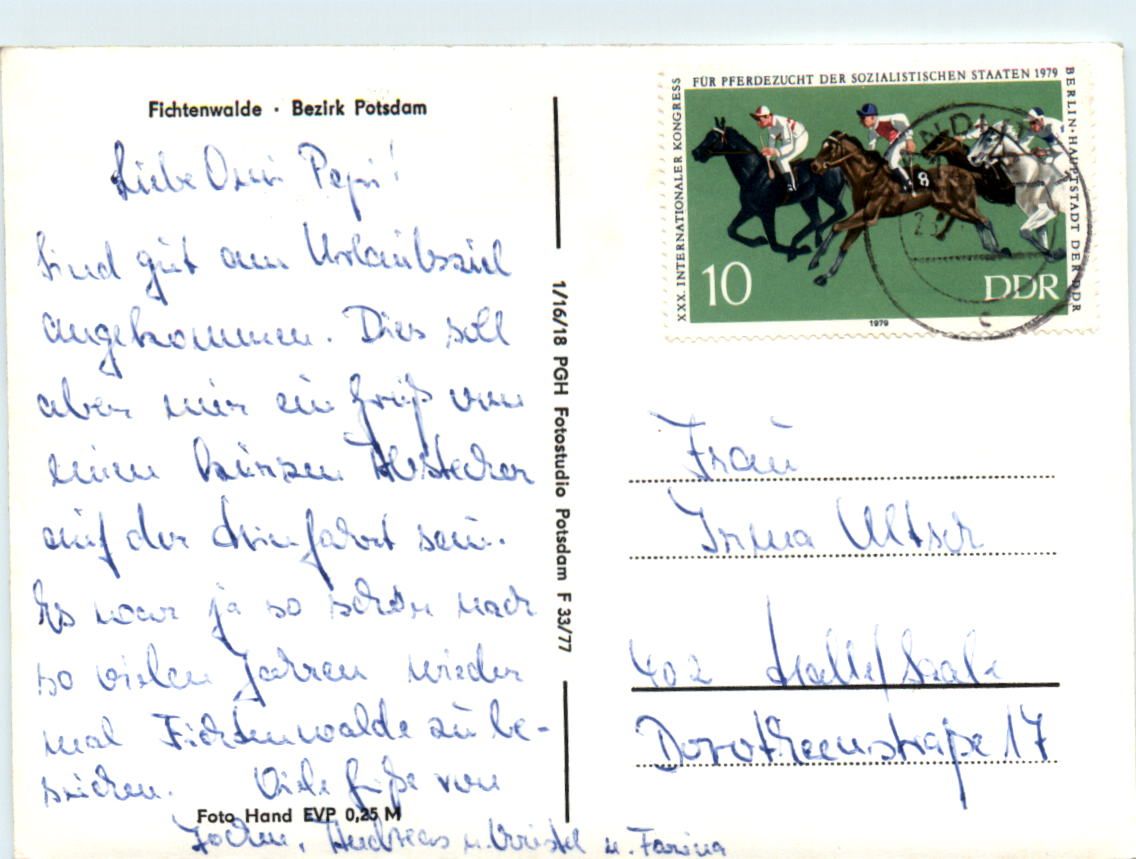 Fichtenwalde · Bezirk Potsdam
Liebe Omi Pepi!
Sind gut am Urlaubsziel
angekommen. Dies soll
aber nur ein Gruß von
einem kurzen Abstecher
auf der Heimfahrt sein.
Es war ja so schön nach
so vielen Jahren wieder
mal Fichtenwalde zu be-
suchen. Viele Grüße von
Foto Hand EVP 0,25 M
Jochen, Andreas u. Christel u. Farina
1/16/18 PGH Fotostudio Potsdam F 33/77
XXX. INTERNATIONALER KONGRESS
FÜR PFERDEZUCHT DER SOZIALISTISCHEN STAATEN 1979
BERLIN·HAUPTSTADT DER DDR
8
10
DDR
1979
Frau
Irma Ultsch
402 Halle/Saale
Dorotheenstraße 17